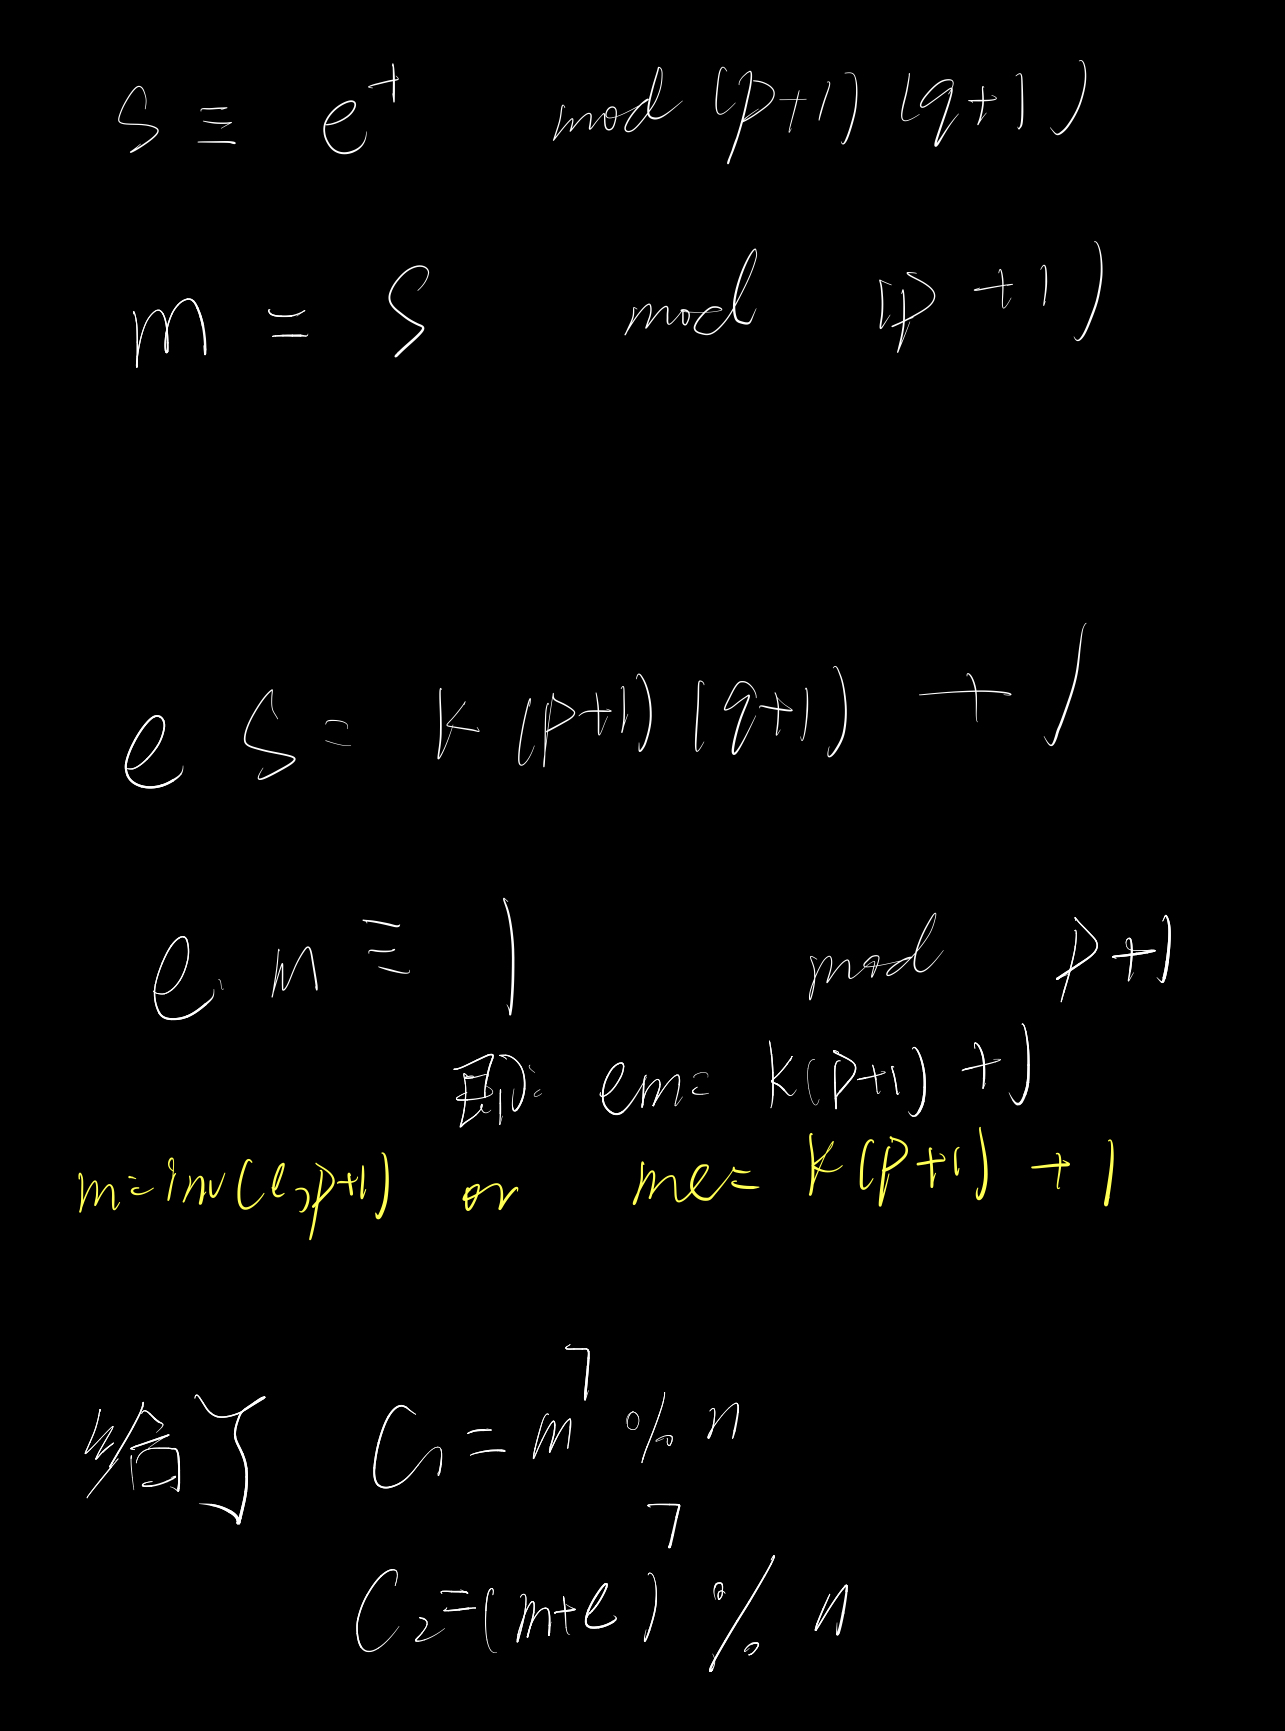 S ≡ e⁺ mod (p+1)(q+1)
m = S mod (p+1)
e S = k(p+1)(q+1) + 1
e m ≡ 1 mod p+1
即: em = k(p+1) + 1
m = inv(e, p+1) or me = k(p+1) + 1
给了 C₁ = m⁷ % n
C₂ = (m+e)⁷ % n